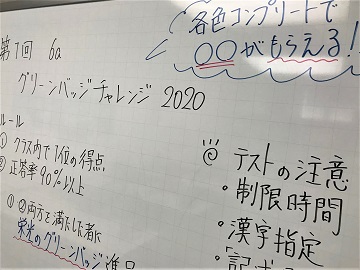 各色コンプリートで
〇〇がもらえる!
第1回 6a
グリーンバッジチャレンジ 2020
ルール
① クラス内で1位の得点
② 正答率90%以上
①②両方を満たした者に
栄光のグリーンバッジ進呈
テストの注意
・制限時間
・漢字指定
・「記述